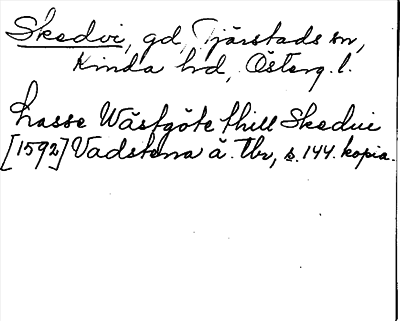 Skedvi, gd, Tjärstads sn,
Kinda hd, Österg. l.
Lasse Wästgöte thill Skedui
[1592] Vadstena ä. Tbr, s. 144. kopia.